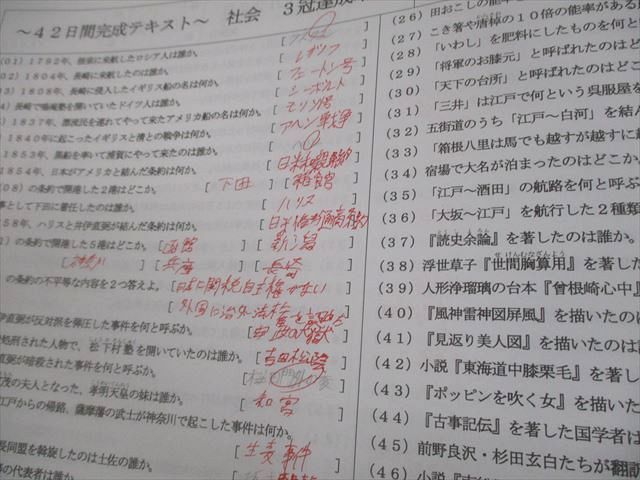 ～42日間完成テキスト～ 社会 3冠達成
(01) 1792年、根室に来航したロシア人は誰か。
02) 1804年、長崎に来航したのは誰か。 [ レザノフ
03) 1808年、長崎に侵入したイギリス船の名は何か。 [ フェートン号
4) 長崎で鳴滝塾を開いていたドイツ人は誰か。 [ シーボルト
) 1837年、漂流民を連れてやって来たアメリカ船の名は何か。 [ モリソン号
1840年に起こったイギリスと清との戦争は何か。 [ アヘン戦争
1853年、黒船を率いて浦賀にやって来たのは誰か。
1854年、日本がアメリカと結んだ条約は何か。 [ 日米和親条約
(08) の条約で開港した2港はどこか。 [ 下田 ] [ 箱館 ]
事として下田に着任したのは誰か。 [ ハリス ]
58年、ハリスと井伊直弼が結んだ条約は何か。 [ 日米修好通商条約
) の条約で開港した5港はどこか。 [ 函館 ] [ 新潟 ]
[ 神奈川 ] [ 兵庫 ] [ 長崎 ]
の条約の不平等な内容を2つ答えよ。 [ 日本に関税自主権がない
[ 外国に治外法権を認める
伊直弼が反対派を弾圧した事件を何と呼ぶか。 [ 安政の大獄
処刑された人物で、松下村塾を開いていたのは誰か。 [ 吉田松陰
直弼が暗殺された事件を何と呼ぶか。 [ 桜田門外の変
茂の夫人となった、孝明天皇の妹は誰か。 [ 和宮 ]
江戸からの帰路、薩摩藩の武士が神奈川で起こした事件は何か。
[ 生麦事件
長同盟を斡旋したのは土佐の誰か。
事の代表者は誰か。
(26) 田おこしの能率
(27) こき箸や唐棹の10倍の能率がある
(28) 「いわし」を肥料にしたものを何と
(29) 「将軍のお膝元」と呼ばれたのはど
(30) 「天下の台所」と呼ばれたのはどこ
(31) 「三井」は江戸で何という呉服屋を
(32) 五街道のうち「江戸～白河」を結ん
(33) 「箱根八里は馬でも越すが越すに越
(34) 宿場で大名が泊まったのはどこか
(35) 「江戸～酒田」の航路を何と呼ぶ
(36) 「大坂～江戸」を航行した2種類
(37) 『読史余論』を著したのは誰か。
(38) 浮世草子『世間胸算用』を著した
(39) 人形浄瑠璃の台本『曽根崎心中』
(40) 『風神雷神図屏風』を描いたのは
(41) 『見返り美人図』を描いたのは誰
(42) 小説『東海道中膝栗毛』を著し
(43) 『ポッピンを吹く女』を描いた
(44) 『古事記伝』を著した国学者は
(45) 前野良沢・杉田玄白たちが翻訳
(46) 小説